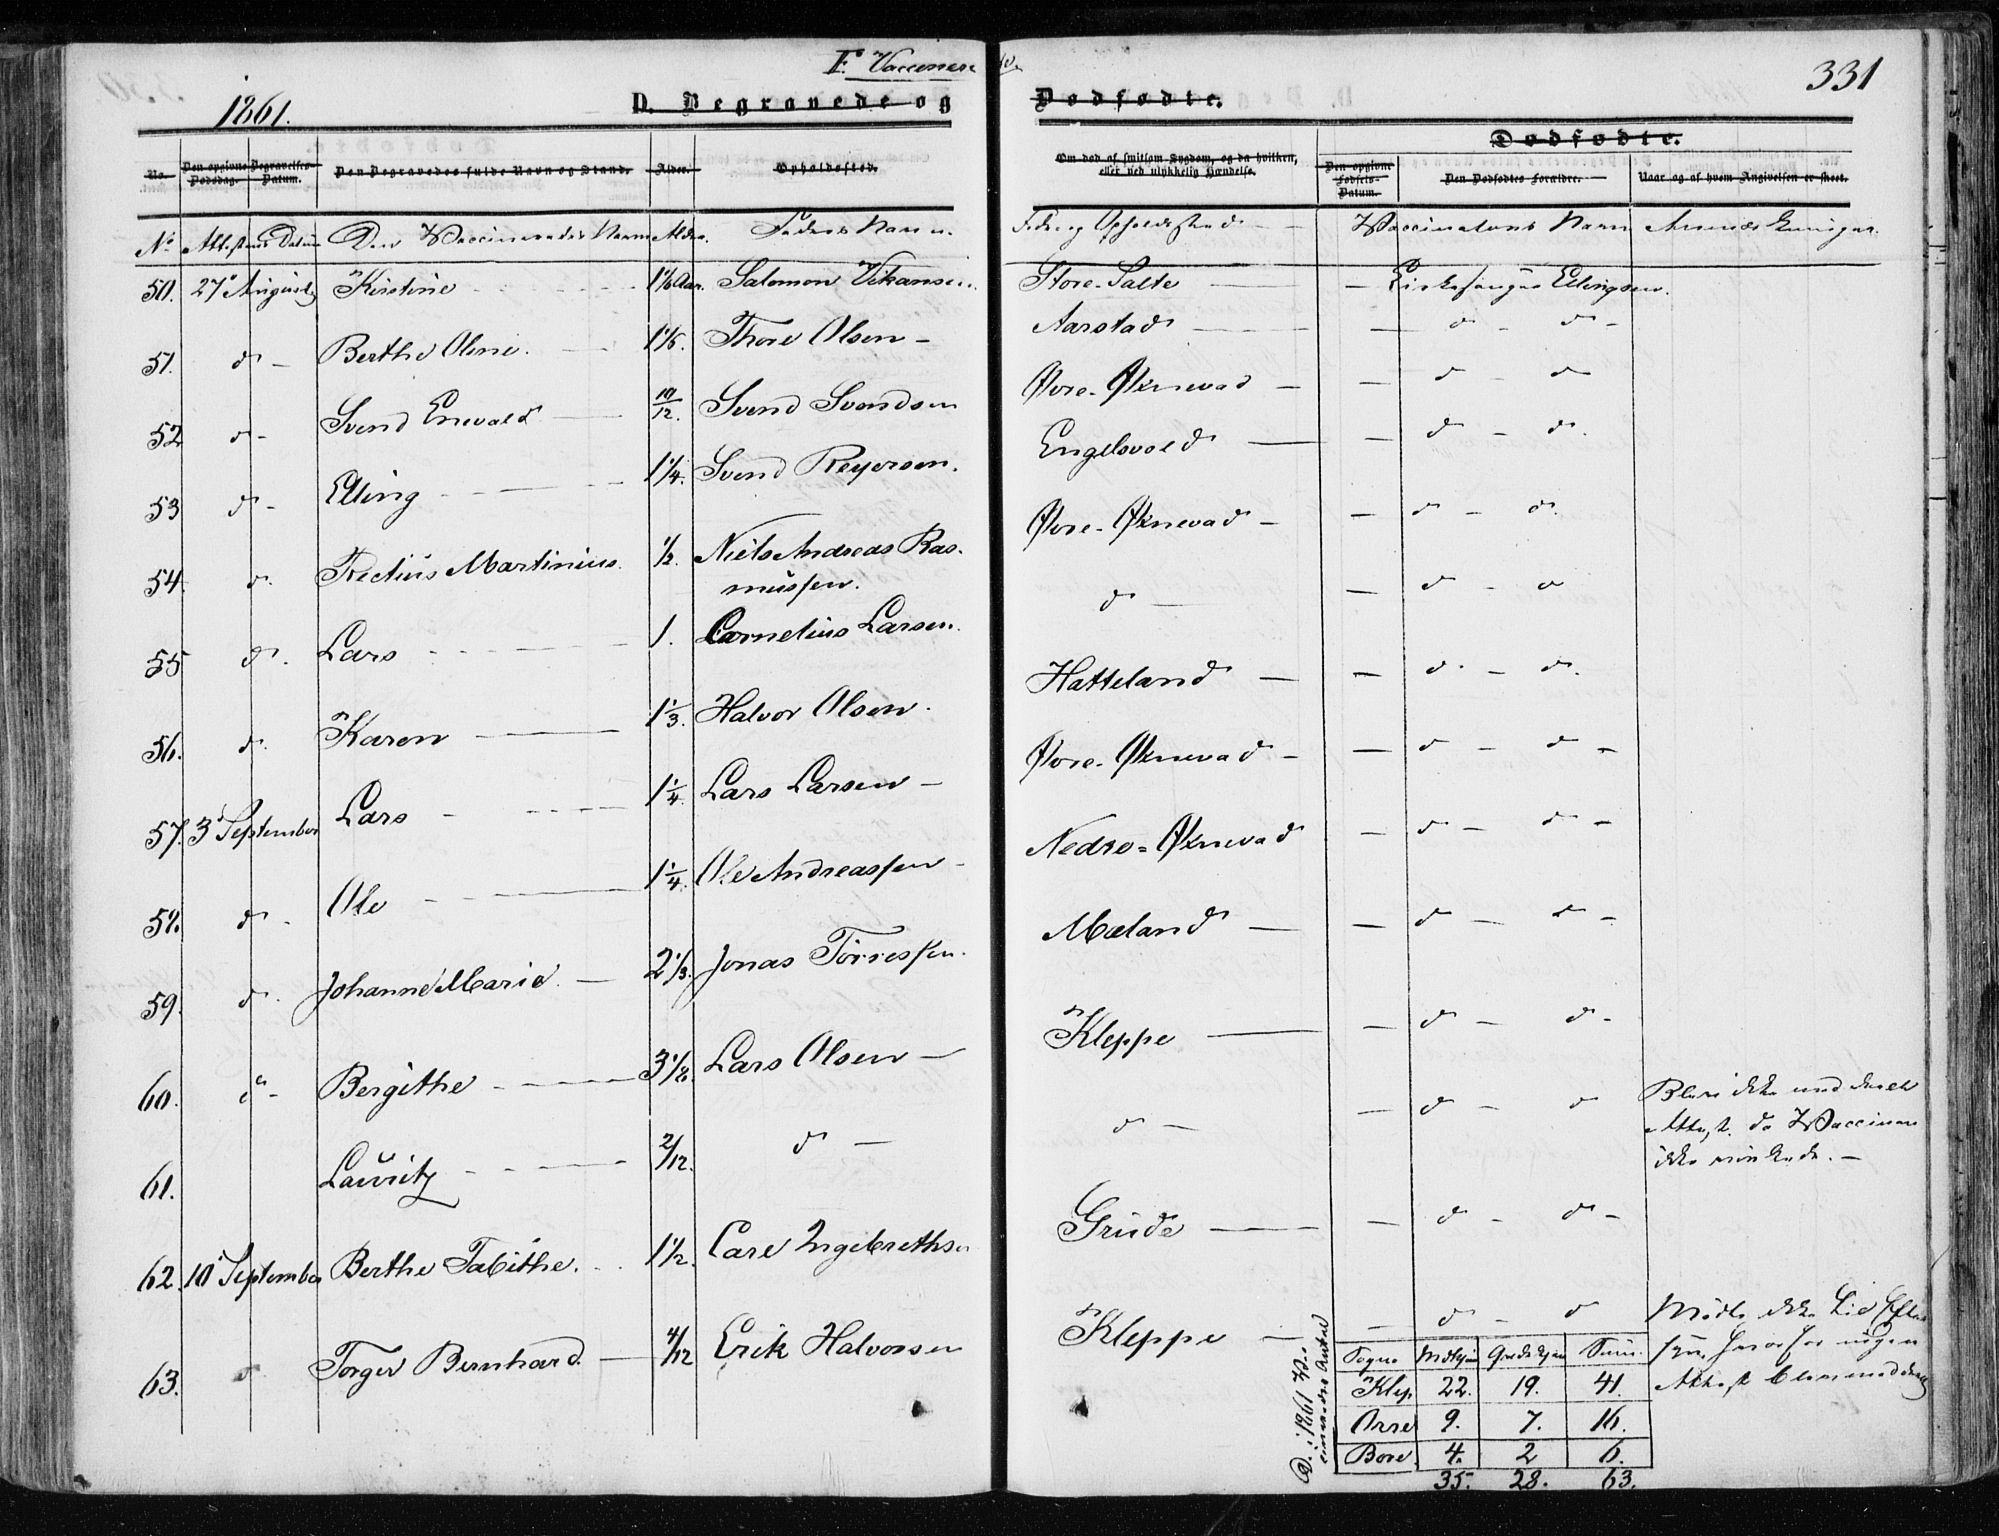 F. Vaccinerede
331
1861.
D. Begravede og Dødfødte.
Dødfødte.
No. Den opgivne Dødsdag. Begravelses-Datum. Den Begravedes fulde Navn og Stand. Alder. Opholdssted. Om død af smitsom Sygdom, og da hvilken, eller ved ulykkelig Hændelse. Den opgivne Fødsels-Datum. Den Dødfødtes Forældre. Naar og af hvem Angivelsen er skeet.
No Attestens Datum Den Vaccineredes Navn Alder. Faders Navn. Opholdssted Vaccinateurs Navn Anmærkninger.
50. 27 August Kirstine 1 1/6 Aar. Salomon Vikansen. Store-Salte - Kirkesanger Ellingsen.
51. d - Berthe Oline. 1 1/6. Thore Olsen - Aarstad - d - d -
52 d - Svend Enevald 10/12. Svend Svendsen Øvre-Øxnevad - d - d
53 d - Elling 1 1/4. Svend Reyersen. Engelsvold - d - d.
54. d. Tectius Martinius. 1/2. Niels Andreas Rasmussen. Øvre-Øxnevad - d - d.
55 d. Lars 1. Cornelius Larsen. d - d - d
56. d. Karen 1 1/3. Halvor Olsen. Hatteland - d. - d.
57. 3 September Lars 1 1/4. Lars Larsen - Øvre-Øxnevad - d - d -
58. d - Ole 1 1/4. Ole Andreassen - Nedre-Øxnevad - d - d -
59. d. Johanne Marie. 2 1/3. Jonas Torressen. Mæland - d - d -
60. d - Bergithe 3 1/8. Lars Olsen - Kleppe - d - d -
61. Lauritz 2/12. d - d - - d - d Blev ikke meddeelt
Attest, da Vaccinen
ikke virkede. -
62. 10 September Berthe Tabithe. 1 1/2. Carl Ingebrethsen Grude - d - d -
63. d Torger Bernhard. 4/12 Erik Halvorsen Kleppe - d - d Mødte ikke til Efter
syn, hvorfor ingen
Attest blev meddeelt
1861
Sogne Mdkjøn Qvdekjøn Sum.
Klep 22. 19. 41.
Orre 9. 7. 16.
Bore. 4. 2 6.
35. 28. 63.